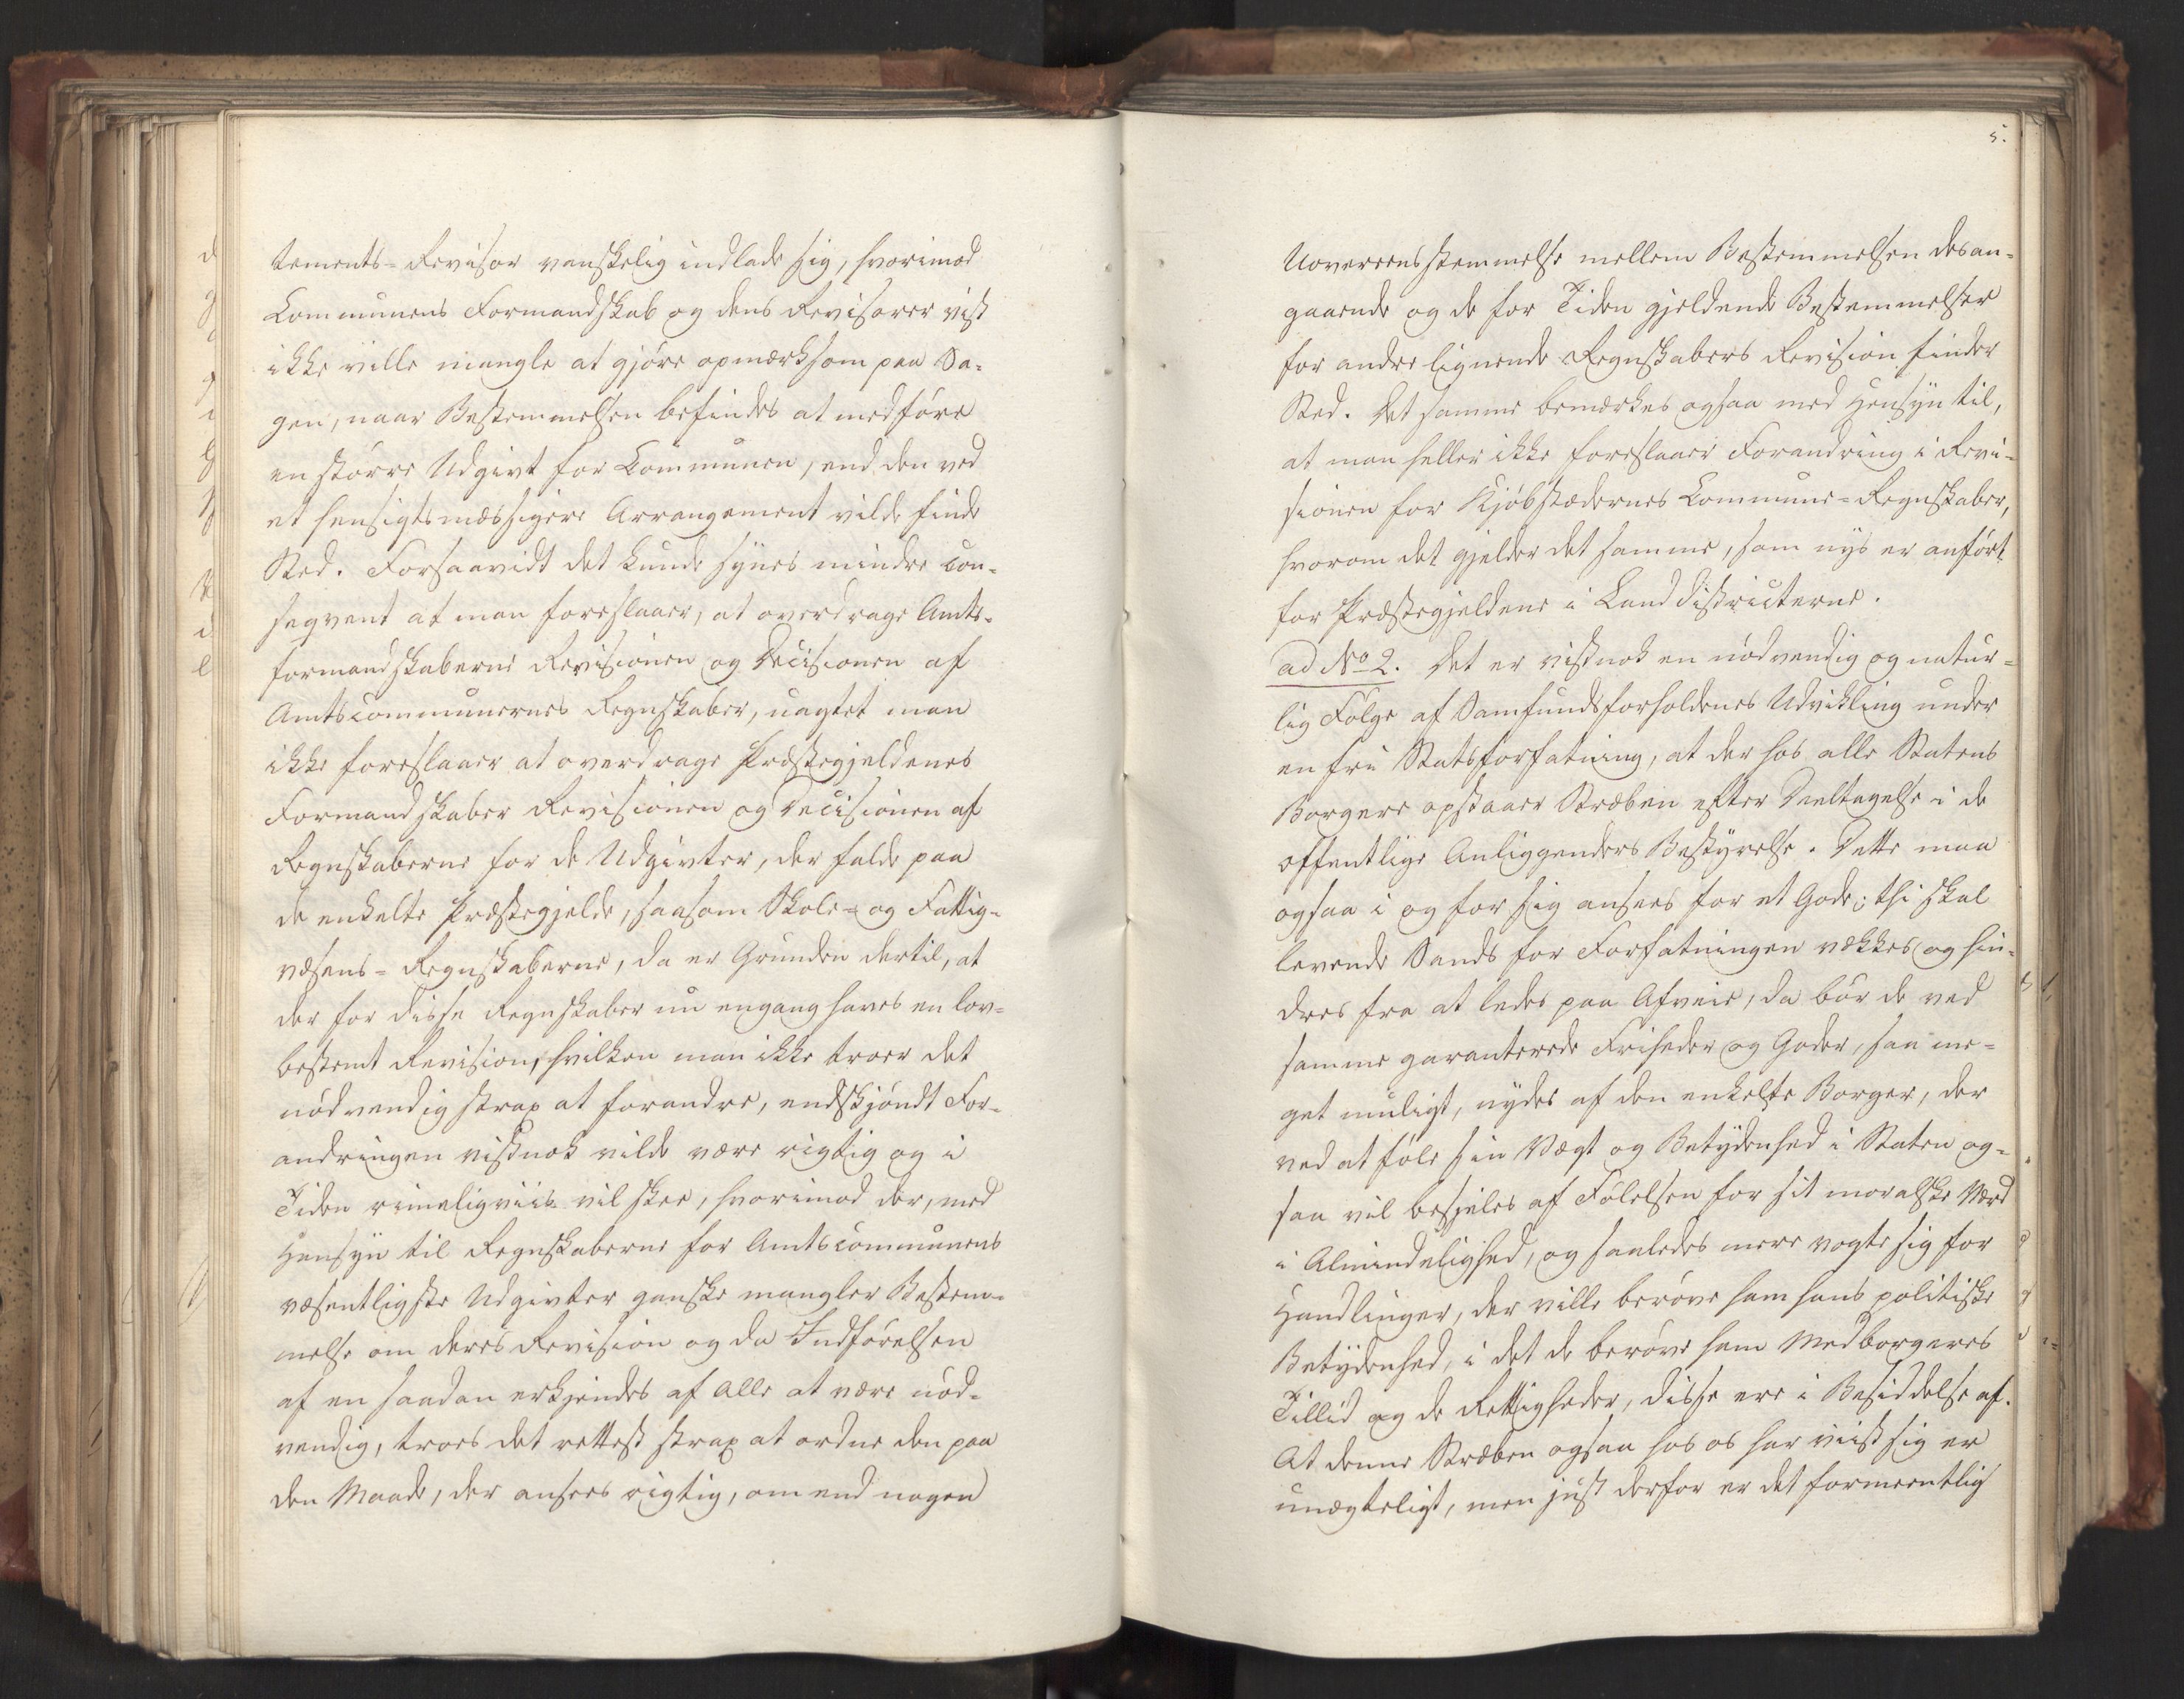 tements-Revisor vanskelig indlade sig, hvorimod
Communens Formandskab og dens Revisorer vist
ikke ville mangle at gjøre opmærksom paa Sa-
gen, naar Bestemmelsen befindes at medføre
en større Udgivt for Communen, end den ved
et hensigtsmæssigere Arrangement vilde finde
Sted. Forsaavidt det kunde synes mindre con-
seqvent at man foreslaaer, at overdrage Amts-
formandskaberne Revisionen og Decisionen af
Amtscommunernes Regnskaber, uagtet man
ikke foreslaaer at overdrage Præstegjeldenes
Formandskaber Revisionen og Decisionen af
Regnskaberne for de Udgivter, der falde paa
de enkelte Præstegjelde, saasom Skole- og Fattig-
væsens-Regnskaberne, da er Grunden dertil, at
der for disse Regnskaber nu engang haves en lov-
bestemt Revision, hvilken man ikke troer det
nødvendig strax at forandre, endskjøndt For-
andringen vistnok vilde være rigtig og i
Tiden rimeligviis vil skee, hvorimod der, med
Hensyn til Regnskaberne for Amtscommunens
væsentligste Udgivter ganske mangler Bestem-
melse om deres Revision og da Indførelsen
af en saadan erkjendes af Alle at være nød-
vendig, troes det rettest strax at ordne den paa
den Maade, der ansees rigtig, om end nogen
5.
Uovereensstemmelse mellem Bestemmelsen desan-
gaaende og de for Tiden gjeldende Bestemmelser
for andre lignende Regnskabers Revision finder
Sted. Det samme bemærkes ogsaa med Hensyn til,
at man heller ikke foreslaaer Forandring i Revi-
sionen for Kjøbstædernes Commune-Regnskaber,
hvorom det gjelder det samme, som nys er anført
for Præstegjeldene i Landdistricterne.
ad No 2. Det er vistnok en nødvendig og natur-
lig Følge af Samfundsforholdenes Udvikling under
en fri Statsforfatning, at der hos alle Statens
Borgere opstaaer Stræben efter Deeltagelse i de
offentlige Anliggenders Bestyrelse. Dette maa
ogsaa i og for sig ansees for et Gode; thi skal
levende Sands for Forfatningen vækkes og hin-
dres fra at ledes paa Afveie, da bør de ved
samme garanterede Friheder og Goder, saa me-
get muligt, nydes af den enkelte Borger, der
ved at føle sin Vægt og Betydenhed i Staten og-
saa vil besjeles af Følelsen for sit moralske Værd
i Almindelighed, og saaledes mere vogte sig for
Handlinger, der ville berøve ham hans politiske
Betydenhed, i det de berøve ham Medborgeres
Tillid og de Rettigheder, disse ere i Besiddelse af.
At denne Stræben ogsaa hos os har viist sig er
unægteligt, men just derfor er det formeentlig